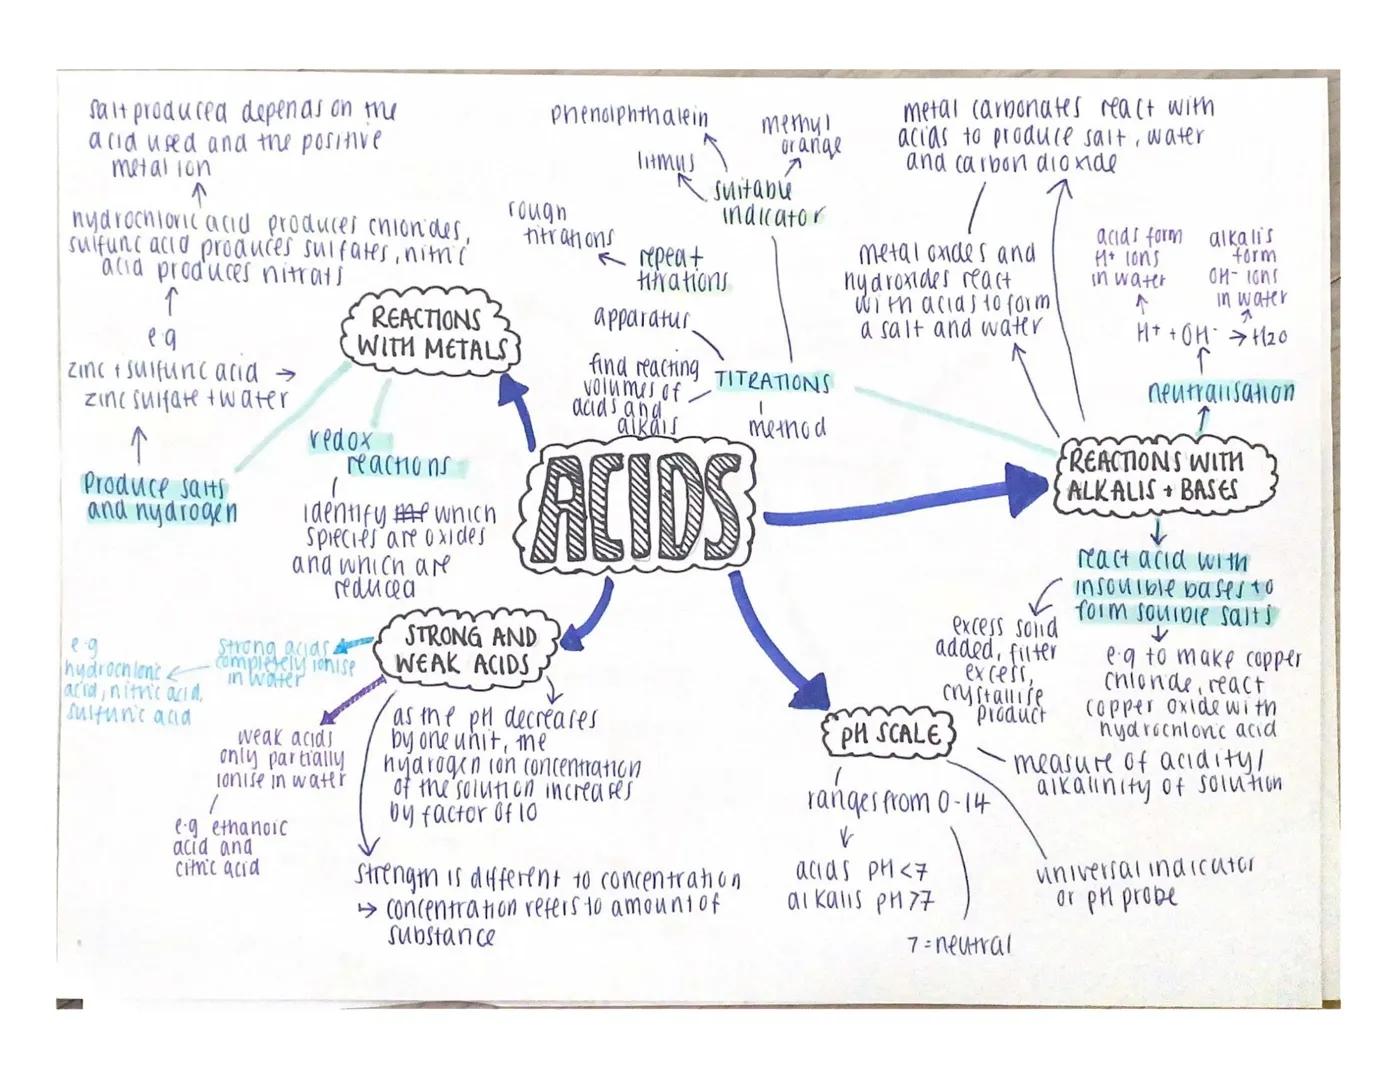 salt produced depends on the
acid used and the positive
metal ion
hydrochloric acid produces chlorides,
sulfuric acid produces sulfates, nitric
acid produces nitrats
e.g
zinc + sulfuric acid →
zinc sulfate + water
Produce salts
and hydrogen
REACTIONS
WITH METALS
redox
reactions
identify which
spiecies are oxides
and which are
reduced
phenolphthalein
methyl
orange
litmus
suitable
indicator
rough
titrations
repeat
titrations
apparatus
find reacting
volumes of
acids and
alkalis
TITRATIONS
method
metal carbonates react with
acids to produce salt, water
and carbon dioxide
metal oxides and
hydroxides react
with acids to form
a salt and water
acids form
H+ ions
in water
alkalis
form
OH- ions
in water
H+ + OH- → H2O
neutralisation
ACIDS
REACTIONS WITH
ALKALIS + BASES
react acid with
insoulble bases to
form soulble salts
excess solid
added, filter
excess,
crystallise
product
e.g to make copper
chloride, react
copper oxide with
hydrochloric acid
STRONG AND
WEAK ACIDS
strong acids
completely ionise
in water
e.g
hydrochloric
acid, nitric acid,
sulfuric acid
weak acids
only partially
ionise in water
e.g ethanoic
acid and
citric acid
as the pH decreases
by one unit, the
hydrogen ion concentration
of the solution increases
by factor of 10
strength is different to concentration
↳ concentration refers to amount of
substance
pH SCALE
measure of acidity/
alkalinity of solution
ranges from 0-14
acids pH<7
alkalis pH>7
7 = neutral
universal indicator
or pH probe